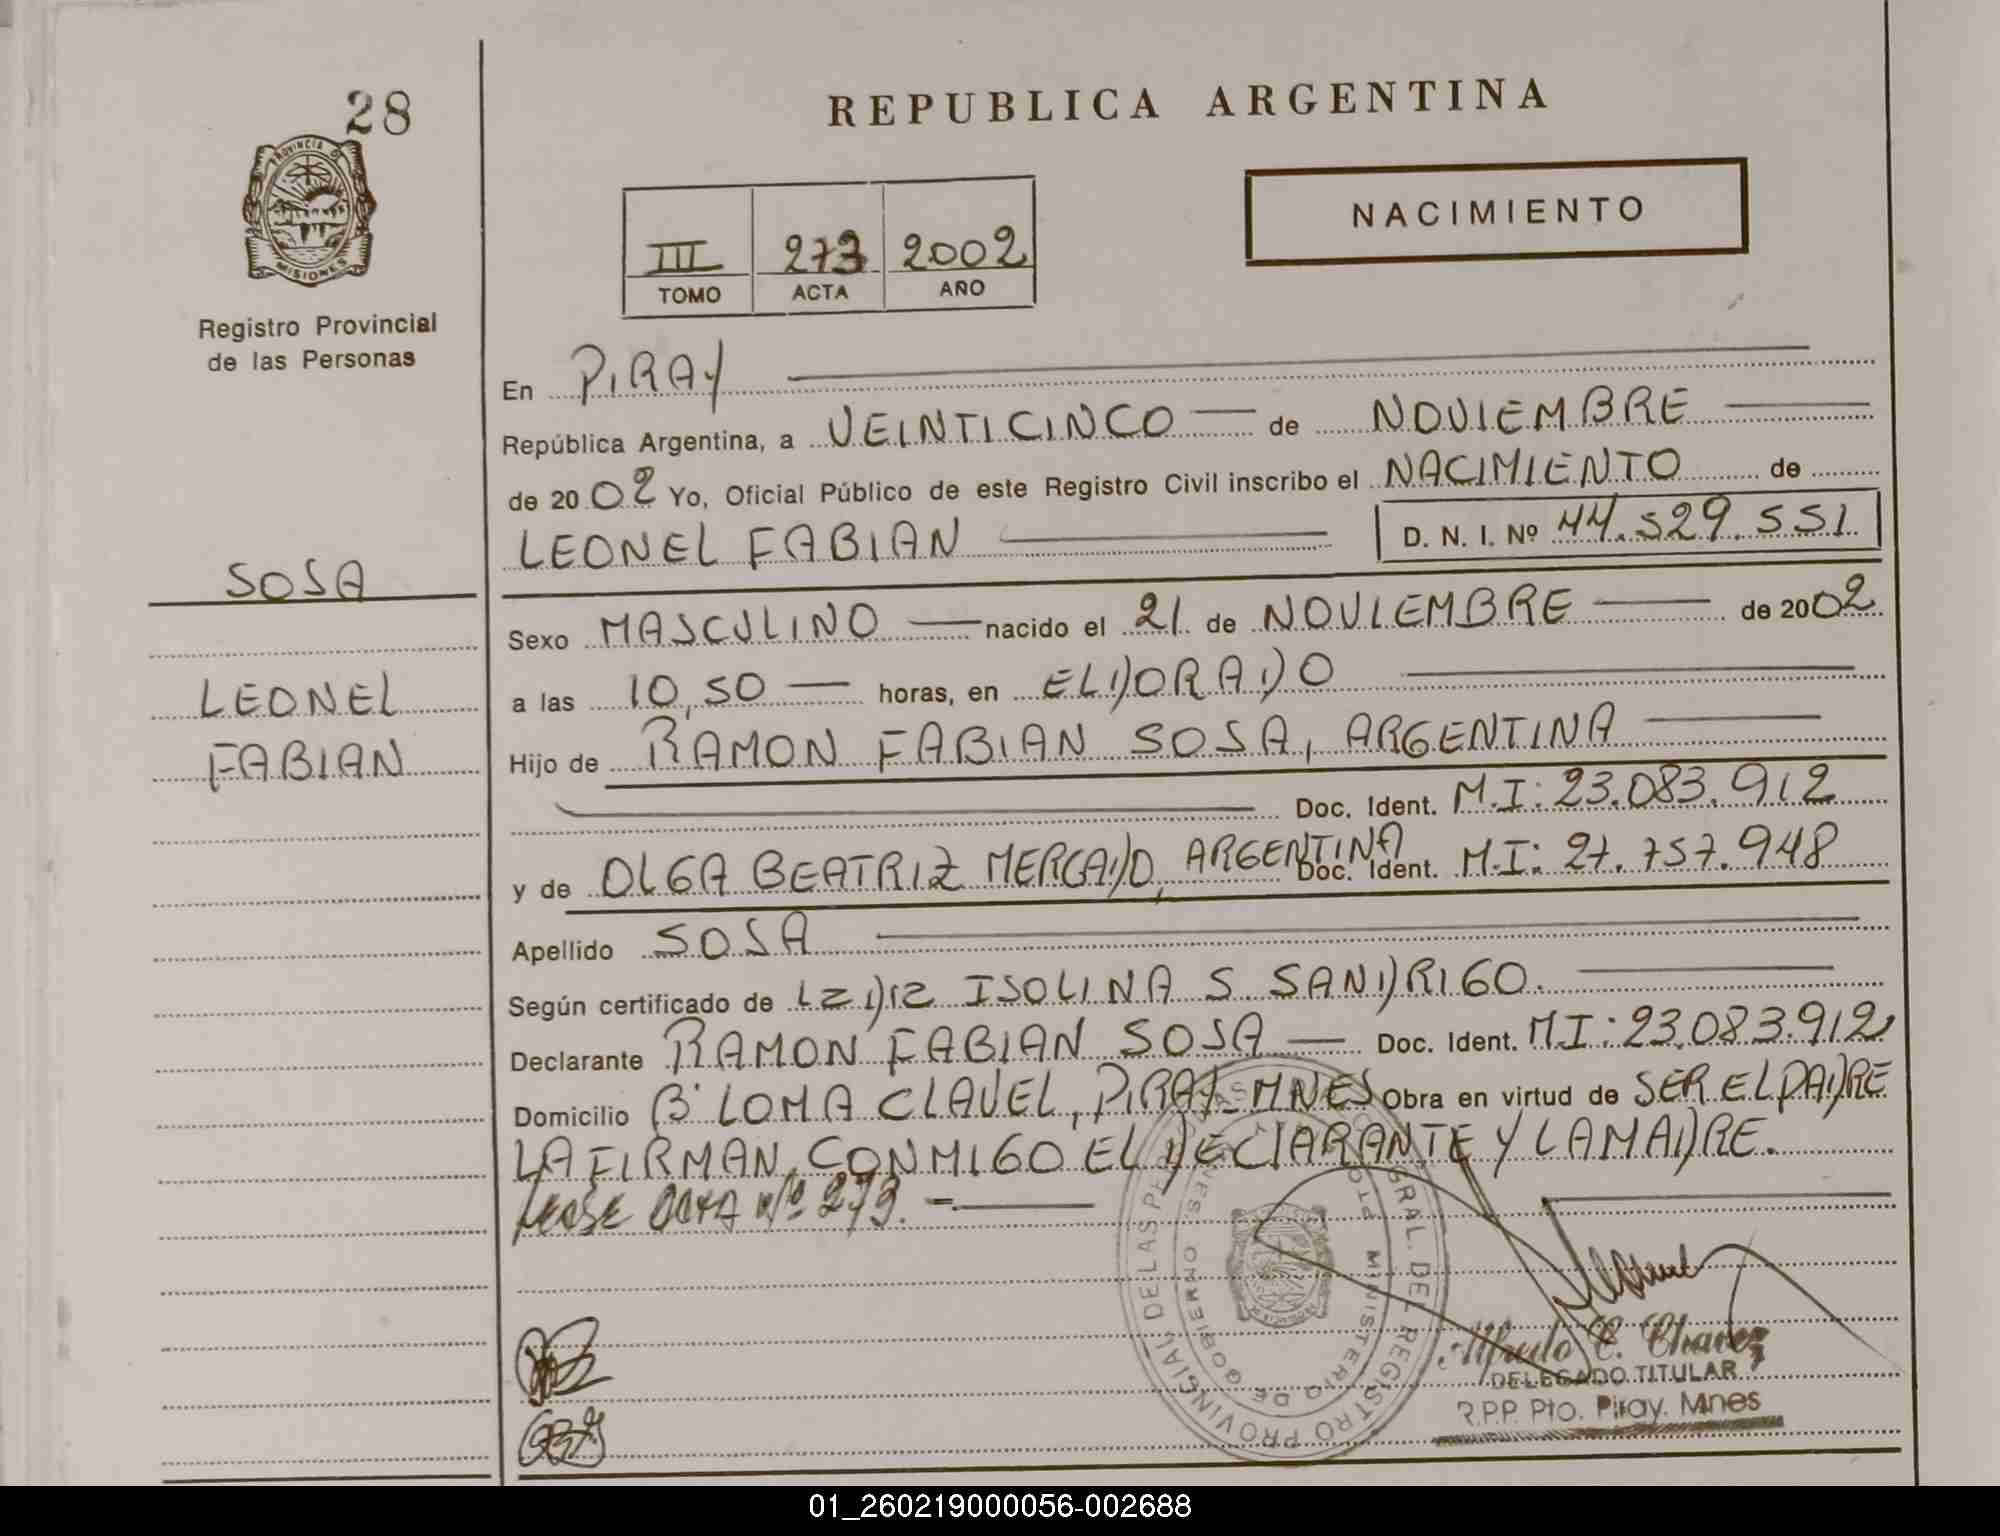 28
PROVINCIA DE
MISIONES
Registro Provincial
de las Personas
SOSA
LEONEL
FABIAN
REPUBLICA ARGENTINA
NACIMIENTO
III 273 2002
TOMO ACTA AÑO
En PIRAY
República Argentina, a VEINTICINCO de NOVIEMBRE
de 2002 Yo, Oficial Público de este Registro Civil inscribo el NACIMIENTO de
LEONEL FABIAN D. N. I. Nº 44.529.551
Sexo MASCULINO nacido el 21 de NOVIEMBRE de 2002
a las 10,50 horas, en ELDORADO
Hijo de RAMON FABIAN SOSA, ARGENTINA
Doc. Ident. M.I: 23.083.912
y de OLGA BEATRIZ MERCADO, ARGENTINA Doc. Ident. M.I: 27.757.948
Apellido SOSA
Según certificado de ISOLINA S. SANDRIGO.
Declarante RAMON FABIAN SOSA Doc. Ident. MI: 23.083.912
Domicilio Bº LOMA CLAVEL, PIRAY-MNES Obra en virtud de SER EL PADRE
LA FIRMAN CONMIGO EL DECLARANTE Y LA MADRE.
lease acta Nº 273.-
GRAL. DEL REGISTRO PROVINCIAL DE LAS
MINISTERIO DE GOBIERNO
Alfredo C. Chavez
DELEGADO TITULAR
R.P.P. Pto. Piray. Mnes
01_260219000056-002688